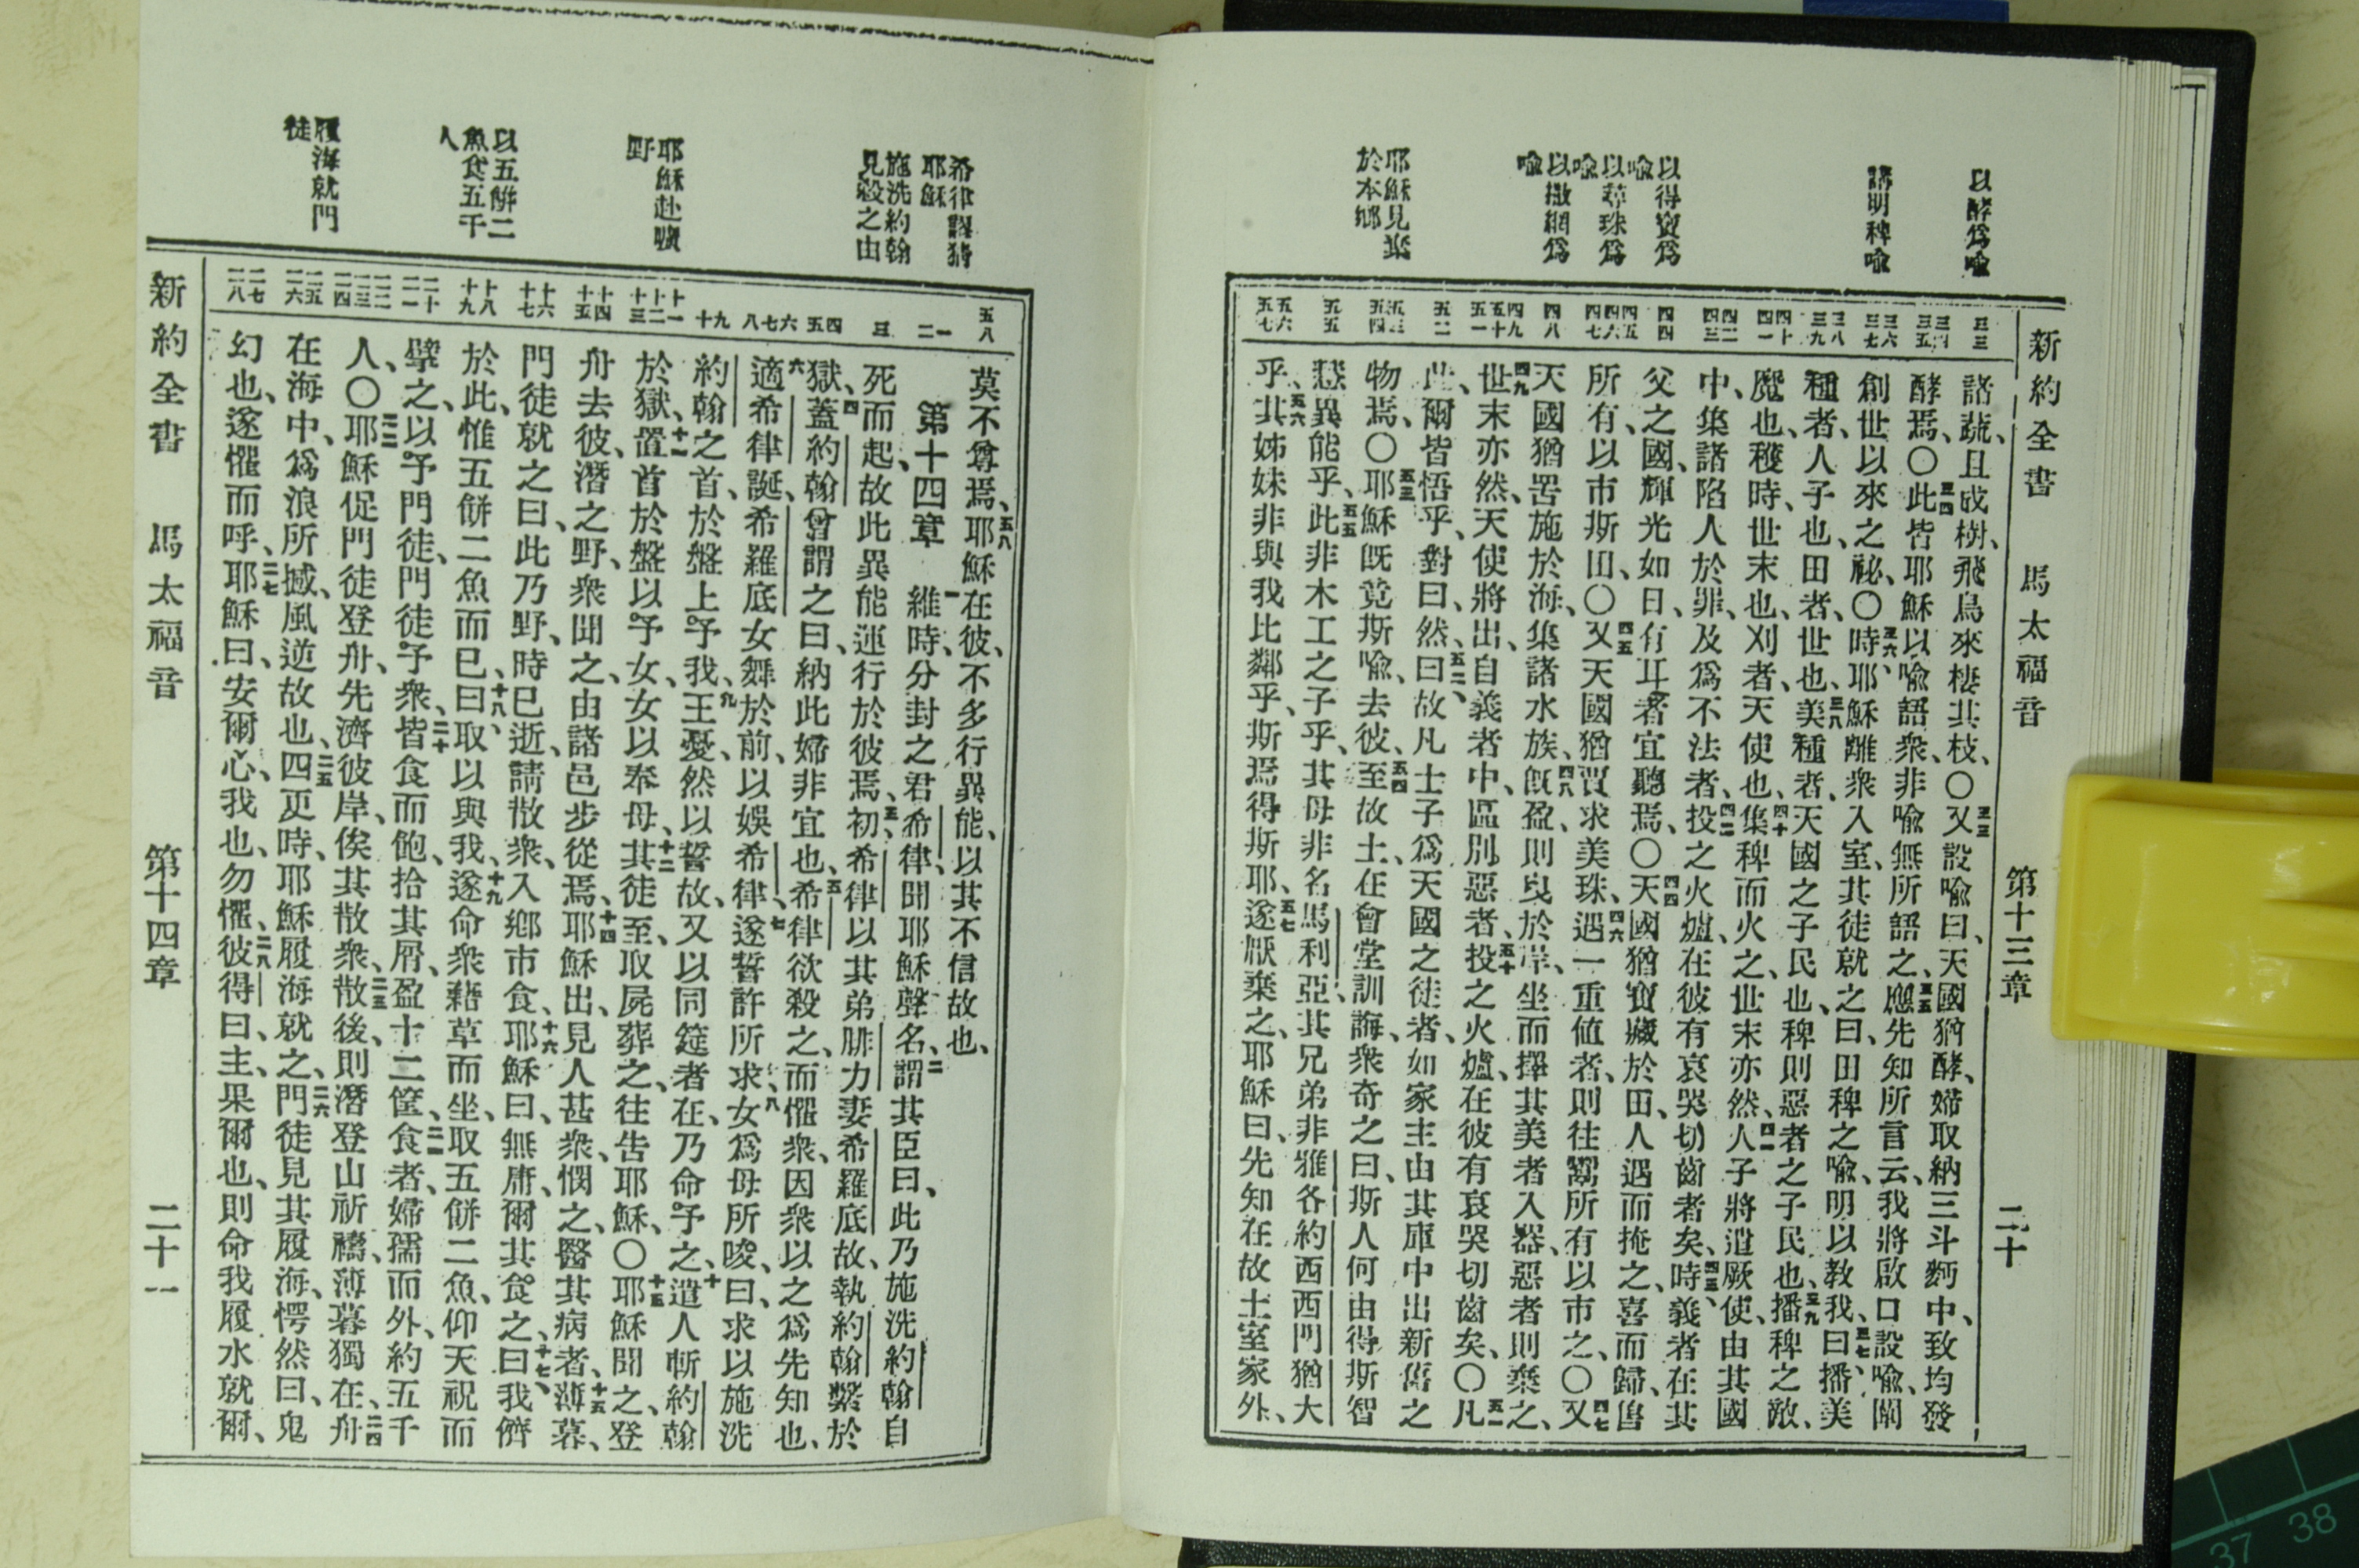 新約全書 馬太福音 第十三章 二十
以酵爲喻
講明稗喻
以得寶爲喻
以尋珠爲喻
以撒網爲喻
耶穌見棄於本鄉
三三
三四 三五
三六 三七
三八 三九
四十 四一
四二 四三
四四
四五 四六 四七
四八
四九 五十 五一
五二
五三 五四
五五
五六 五七
諸蔬、且成樹、飛鳥來棲其枝、〇三三又設喻曰、天國猶酵、婦取納三斗麪中、致均發
酵焉、〇三四此皆耶穌以喻語衆、非喻無所語之、三五應先知所言云、我將啟口設喻、闡
創世以來之祕、〇三六時、耶穌離衆入室、其徒就之曰、田稗之喻、明以教我、三七曰、播美
種者、人子也、田者、世也、三八美種者、天國之子民也、稗則惡者之子民也、三九播稗之敵、
魔也、穫時、世末也、刈者、天使也、四十集稗而火之、世末亦然、四一人子將遣厥使、由其國
中、集諸陷人於罪、及爲不法者、四二投之火爐、在彼有哀哭切齒者矣、四三時、義者在其
父之國、輝光如日、有耳者宜聽焉、〇四四天國猶寶藏於田、人遇而掩之、喜而歸、售
所有、以市斯田、〇四五又天國猶賈求美珠、四六遇一重值者、則往鬻所有以市之、〇四七又
天國猶罟施於海、集諸水族、四八旣盈、則曳於岸、坐而擇其美者入器、惡者則棄之、
四九世末亦然、天使將出、自義者中、區別惡者、五十投之火爐、在彼有哀哭切齒矣、〇五一凡
此、爾皆悟乎、對曰、然、五二曰、故凡士子爲天國之徒者、如家主由其庫中出新舊之
物焉、〇五三耶穌旣竟斯喻、去彼、五四至故土、在會堂訓誨、衆奇之、曰、斯人何由得斯智
慧異能乎、五五此非木工之子乎、其母非名馬利亞、其兄弟非雅各約西西門猶大
乎、五六其姊妹非與我比鄰乎、斯焉得斯耶、五七遂厭棄之、耶穌曰、先知在故土室家外、
希律謂猶耶穌
施洗約翰見殺之由
耶穌赴曠野
以五餅二魚食五千人
履海就門徒
五八
一 二
三
四 五
六 七 八
九 十
十一 十二 十三
十四 十五
十六 十七
十八 十九
二十 二一
二二 二三 二四
二五 二六
二七 二八
莫不尊焉、五八耶穌在彼、不多行異能、以其不信故也、
第十四章 一維時、分封之君希律、聞耶穌聲名、二謂其臣曰、此乃施洗約翰自
死而起、故此異能運行於彼焉、三初、希律以其弟腓力妻希羅底故、執約翰繫於
獄、四蓋約翰曾謂之曰、納此婦非宜也、五希律欲殺之、而懼衆、因衆以之爲先知也、
六適希律誕、希羅底女舞於前、以娛希律、七遂誓許所求、八女爲母所唆、曰、求以施洗
約翰之首、於盤上予我、九王憂、然以誓故、又以同筵者在、乃命予之、十遣人斬約翰
於獄、十一置首於盤以予女、女以奉母、十二其徒至、取屍葬之、往告耶穌、〇十三耶穌聞之、登
舟去彼、潛之野、衆聞之、由諸邑步從焉、十四耶穌出、見人甚衆、憫之、醫其病者、十五薄暮、
門徒就之曰、此乃野、時已逝、請散衆、入鄉市食、十六耶穌曰、無庸、爾其食之、十七曰、我儕
於此、惟五餅二魚而已、十八曰、取以與我、十九遂命衆藉草而坐、取五餅二魚、仰天祝而
擘之、以予門徒、門徒予衆、二十皆食而飽、拾其屑、盈十二筐、二一食者、婦孺而外、約五千
人、〇二二耶穌促門徒登舟、先濟彼岸、俟其散衆、二三散後、則潛登山祈禱、薄暮獨在、二四舟
在海中、爲浪所撼、風逆故也、二五四更時、耶穌履海就之、二六門徒見其履海、愕然曰、鬼
幻也、遂懼而呼、二七耶穌曰、安爾心、我也、勿懼、二八彼得曰、主、果爾也、則命我履水就爾、
新約全書 馬太福音 第十四章 二十一
37 38